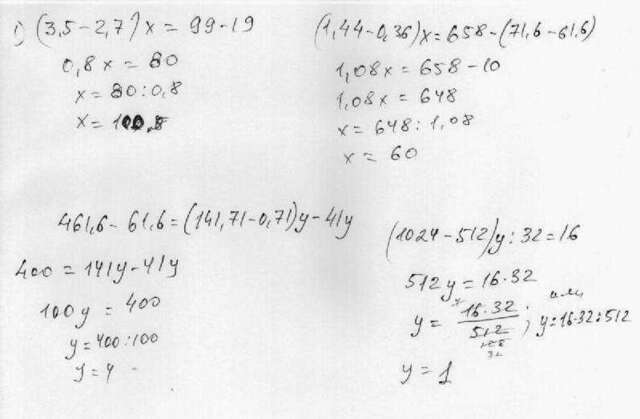 1) (3,5-2,7)x = 99-19
0,8x = 80
x = 80:0,8
x = 100
(1,44-0,36)x = 658-(71,6-61,6)
1,08x = 658-10
1,08x = 648
x = 648:1,08
x = 60
461,6-61,6 = (141,71-0,71)y-41y
400 = 141y-41y
100y = 400
y = 400:100
y = 4
(1024-512)y:32 = 16
512y = 16·32
или
y = 16·32/512; y = 16·32:512
32
y = 1